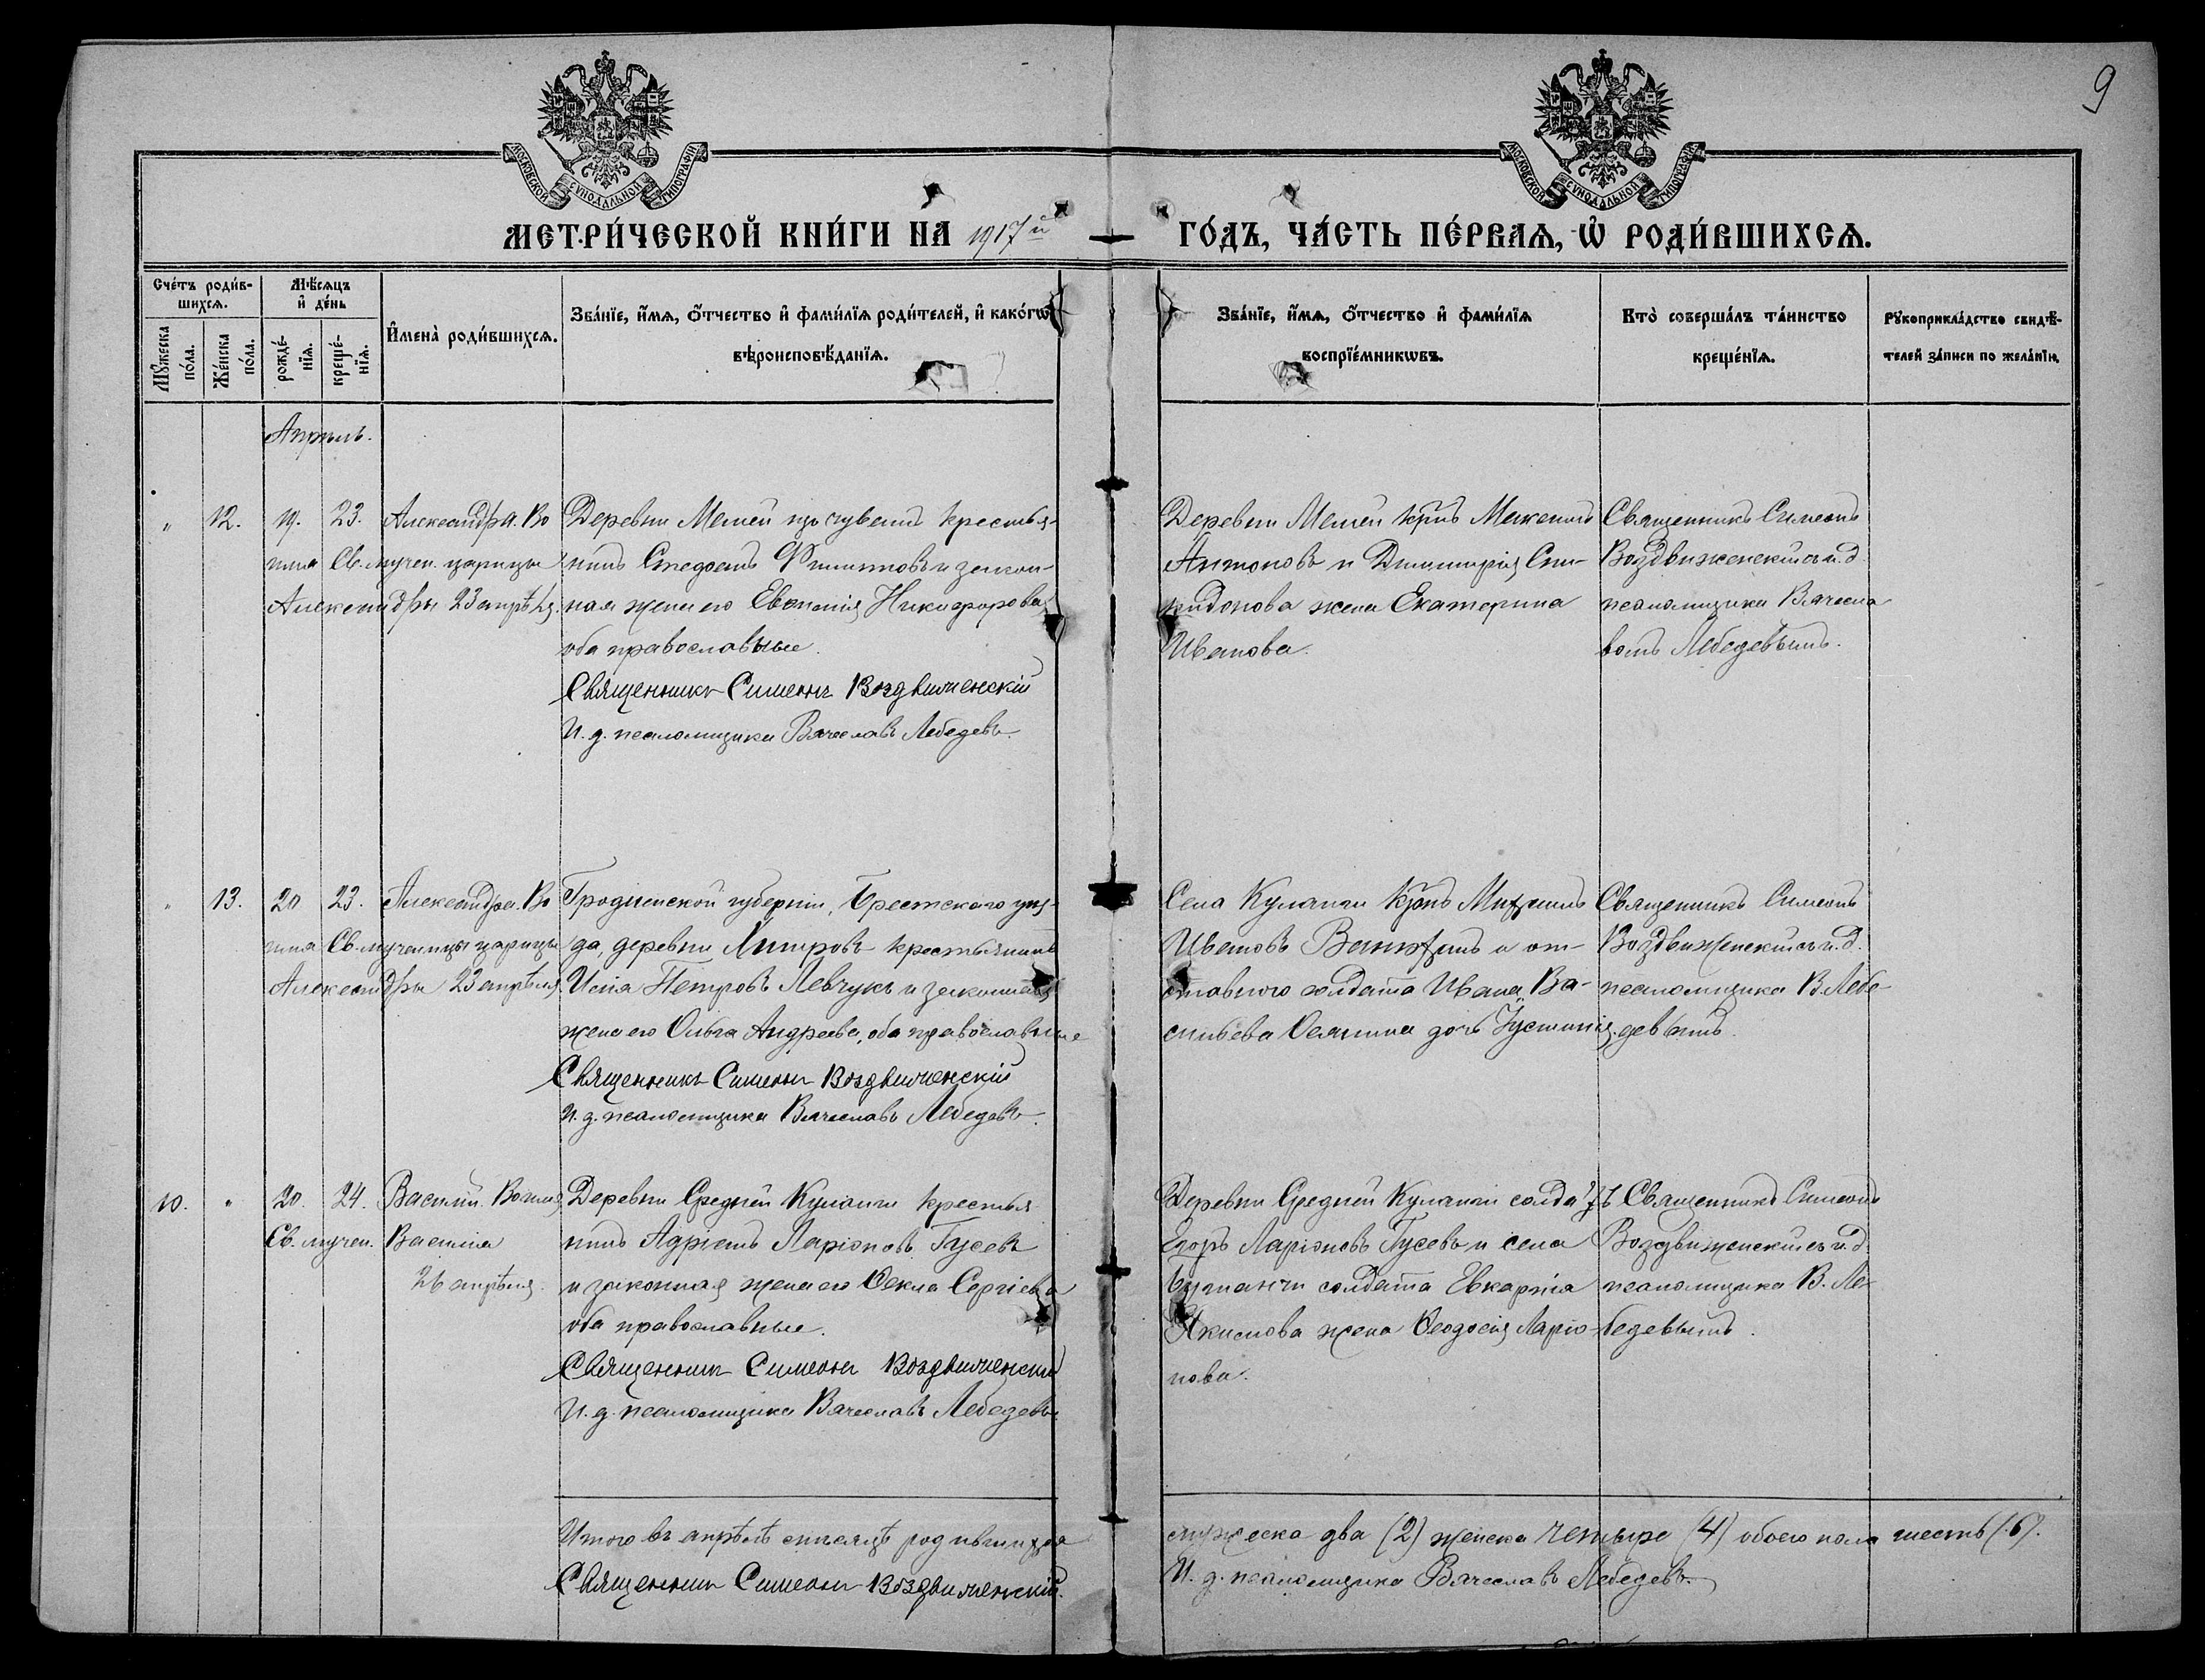 9
МОСКОВСКОЙ СУНОДАЛЬНОЙ ТИПОГРАФИИ
МОСКОВСКОЙ СУНОДАЛЬНОЙ ТИПОГРАФИИ
МЕТРИ́ЧЕСКОЙ КНИ́ГИ НА 1917й ГО́ДЪ, ЧА́СТЬ ПЕ́РВАѦ, Ѡ РОДИ́ВШИХСѦ.
Сче́тъ роди́в-
шихсѧ.
Мꙋжеска по́ла.
Же́нска по́ла.
Мѣ́сѧцъ и де́нь
рожде́-нїѧ.
креще́-нїѧ.
Имена̀ роди́вшихсѧ.
Зва́нїе, и́мѧ, ѻ́тчество и фами́лїѧ роди́телей, и како́гѡ
вѣроисповѣ́данїѧ.
Зва́нїе, и́мѧ, ѻ́тчество и фами́лїѧ
воспрїе́мникѡвъ.
Кто̀ соверша́лъ та́инство
креще́нїѧ.
Рꙋкоприкла́дство свидѣ́-
телей за́писи по жела́нїю.
Апрѣль.
" 12. 19. 23. Александра. Во
имя Св. мучен. царицы
Александры 23 апрѣля.
Деревни Мемей изъ чувашъ крестья-
нинъ Филипповъ и закон-
ная жена его Никифорова
оба православные.
Священникъ Симеонъ Воздвиженскій
И. д. псаломщика Вячеславъ Лебедевъ.
Деревни Мемей крнъ
Антоновъ и Димитрія Спи-
ридонова жена Екатерина
Иванова.
Священникъ Симеонъ
Воздвиженскій съ и. д.
псаломщика Вячесла
вомъ Лебедевымъ.
" 13. 20 23. Александра. Во
имя Св. мученицы царицы
Александры 23 апрѣля
Гродненской губерніи, Брестскаго уѣз-
да, деревни крестьянинъ
Илія Петровъ Левчукъ и законная
жена его Ольга Андреева, оба православные
Священникъ Симеонъ Воздвиженскій
И. д. псаломщика Вячеславъ Лебедевъ.
Села Куланги крнъ Михаилъ
Ивановъ и от-
ставного солдата Ивана Ва-
сильева дочь Іустинія.
Священникъ Симеонъ
Воздвиженскій съ и. д.
псаломщика В. Лебе-
девымъ.
10. " 20. 24. Василій. Во имя
Св. мучен. Василія
26 апрѣля.
Деревни Средней Куланги крестья
нинъ Адріанъ Ларіоновъ Гусевъ
и законная жена его Ѳекла Сергіева
оба православные.
Священникъ Симеонъ Воздвиженскій
И. д. псаломщика Вячеславъ Лебедевъ
Деревни Средней Куланги солдатъ
Егоръ Ларіоновъ Гусевъ и села
солдата Евкарпія
Якимова жена Ѳеодосія Ларіо-
нова.
Священникъ Симеонъ
Воздвиженскій съ и. д.
псаломщика В. Ле-
бедевымъ.
Итого въ апрѣлѣ мѣсяцѣ родившихся мужеска два (2) женска четыре (4) обоего пола шесть (6).
Священникъ Симеонъ Воздвиженскій. И. д. псаломщика Вячеславъ Лебедевъ.